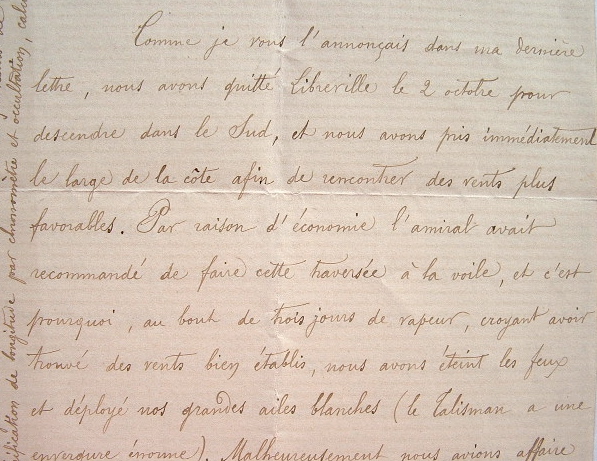 Comme je vous l'annonçais dans ma dernière
lettre, nous avons quitté Libreville le 2 octobre pour
descendre dans le Sud, et nous avons pris immédiatement
le large de la côte afin de rencontrer des vents plus
favorables. Par raison d'économie l'amiral avait
recommandé de faire cette traversée à la voile, et c'est
pourquoi, au bout de trois jours de vapeur, croyant avoir
trouvé des vents bien établis, nous avons éteint les feux
et déployé nos grandes ailes blanches (le Talisman a une
envergure énorme). Malheureusement nous avions affaire
de longitude par chronomètre et occultation,